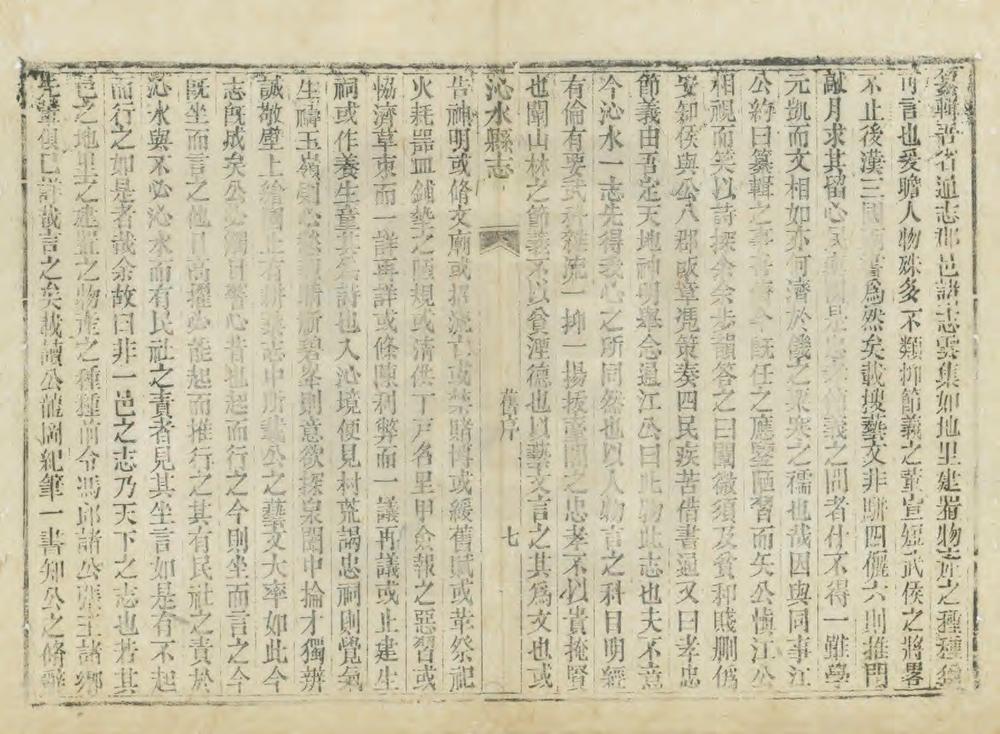 纂輯晋省通志郡邑諸志雲集如地里建置物產之種種
可言也爰瞻人物殊多不類抑節義之董宣短武侯之將畧
不止後漢三國爲然矣載搜藝文非駢四儷六則推門
敲月求其留心是之問者什不得一雖學
元凱而文相如亦何濟於饑之粟寒之襦也哉因與同事江
公約曰纂輯之事今既任之應鑒陋習而矢公慎江公
相視而笑以詩探余余步韻答之曰闡微須及貧和賤刪僞
安知侯與公八郡畋章凴策奏四民疾苦借書通又曰孝忠
節義由吾定天地神明舉念通江公曰此物此志也夫不意
今沁水一志先得我心之所同然也以人物言之科目明經
有倫有要武科雜流一抑一揚援臺閣之忠孝不以貴掩賢
也闡山林之節義不以貧湮德也以藝文言之其爲文也或
沁水縣志 舊序 七
告神明或脩文廟或招流亡或禁賭博或緩舊賦或革祭祀
火耗噐皿鋪墊之陋規或清供丁戸名里甲僉報之惡習或
恊濟草束而一詳再詳或條陳利弊而一議再議或止建生
祠或作養生童其爲詩也入沁境便見村荒謁忠祠則覺氣
生禱玉嶺則晴嶄碧峯則意欲探泉闈中掄才獨辨
誠敬壁上繪圖志中所載公之藝文大率如此今
志既成矣公心昔也起而行之今則坐而言之今
既坐而言之他日高擢必能起而推行之其有民社之責於
沁水與不必沁水而有民社之責者見其坐言如是有不起
而行之如是者哉余故曰非一邑之志乃天下之志也若其
邑之地里之建置之物產之種種前令馮邱諸公張王諸鄉
先輩俱已詳哉言之矣載讀公龍岡紀筆一書知公之脩辭